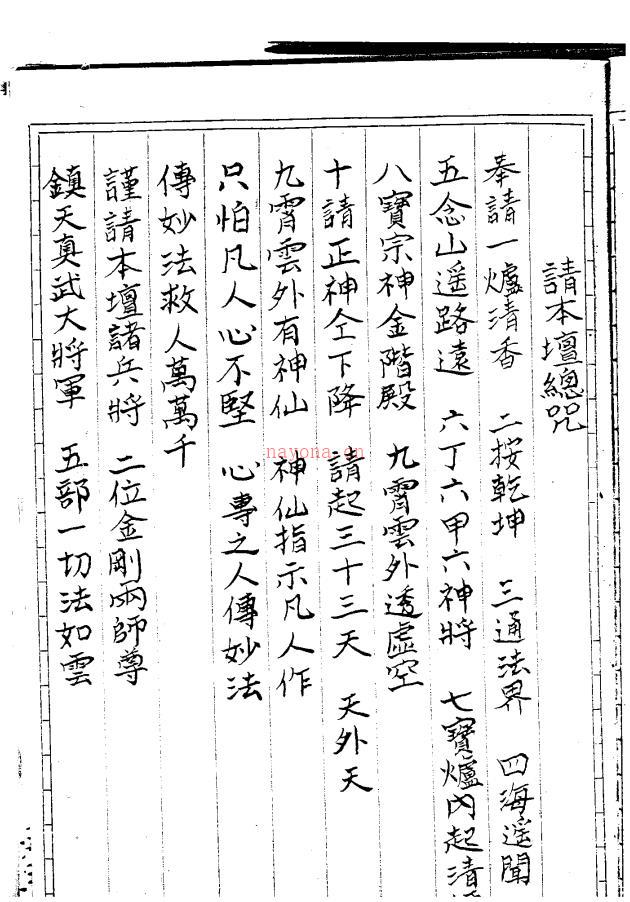 請本壇總咒
奉請一爐清香 二按乾坤 三通法界 四海遥聞
五念山遥路遠 六丁六甲六神將 七寶爐內起清
八寶宗神金階殿 九霄雲外透虛空
十請正神仝下降 請起三十三天 天外天
九霄雲外有神仙 神仙指示凡人作
只怕凡人心不堅 心專之人傳妙法
傳妙法救人萬萬千
謹請本壇諸兵將 二位金剛兩師尊
鎮天真武大將軍 五部一切法如雲
nayona.cn